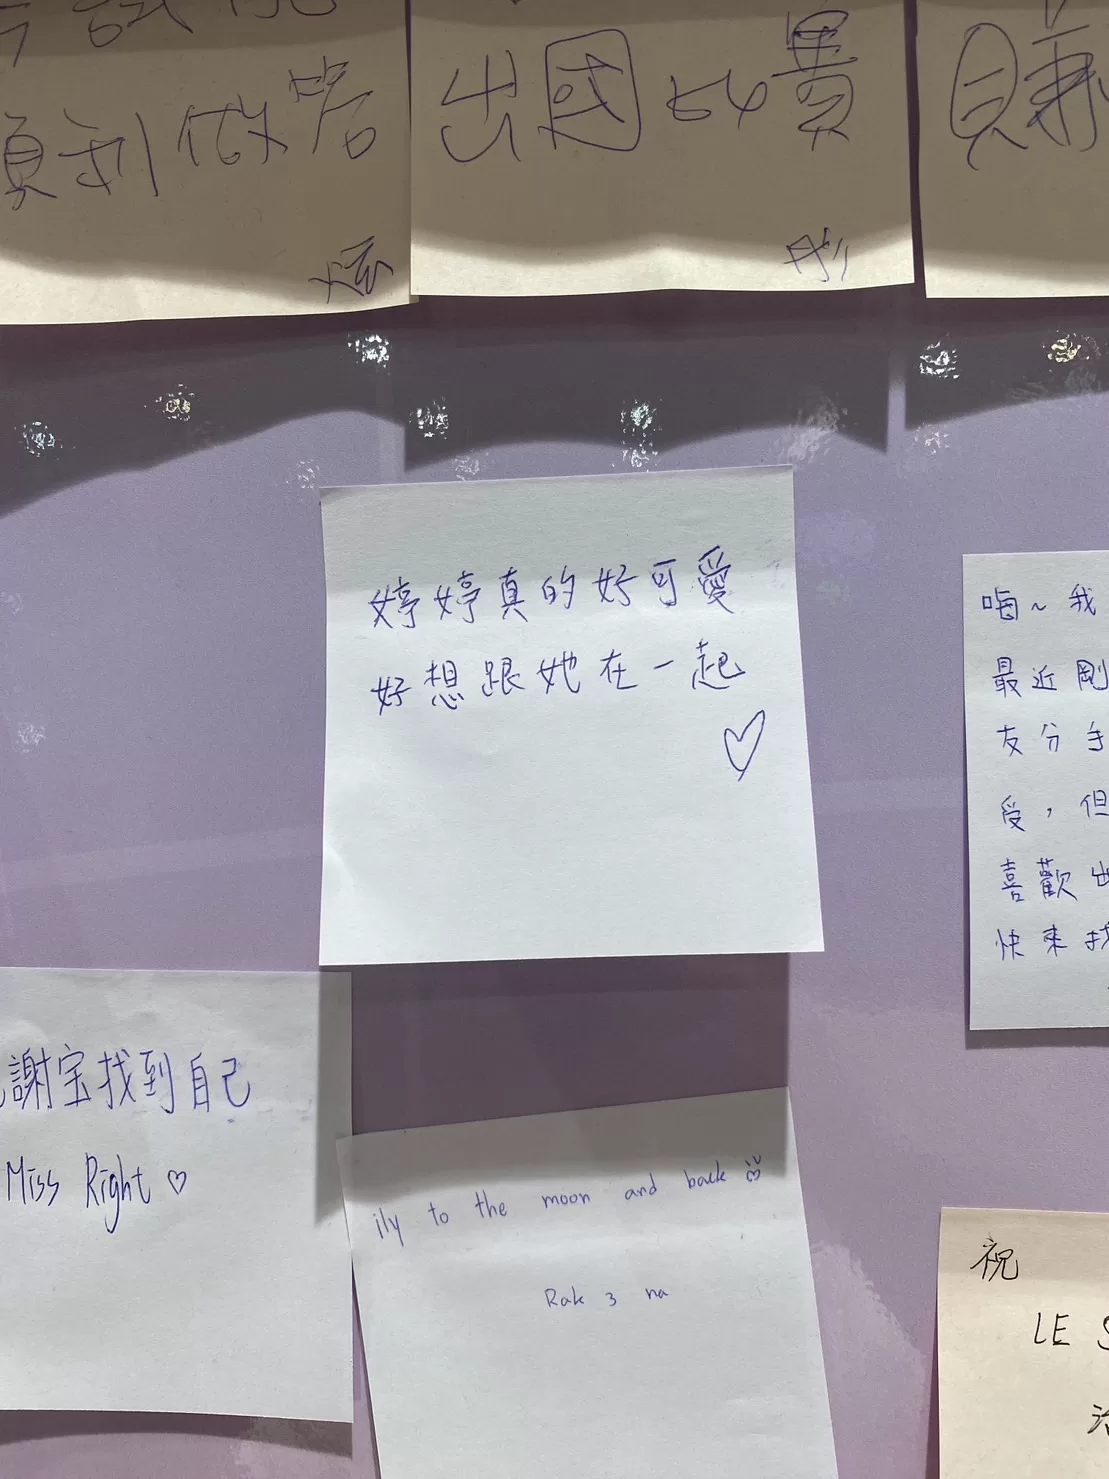 順利做
出國比賽
婷婷真的好可愛
好想跟她在一起
♡
嗨~我
最近剛
友分手
受，但
喜歡出
快來找
謝宝找到自己
Miss Right ♡
ily to the moon and back
Rak 3 na
祝
LE S